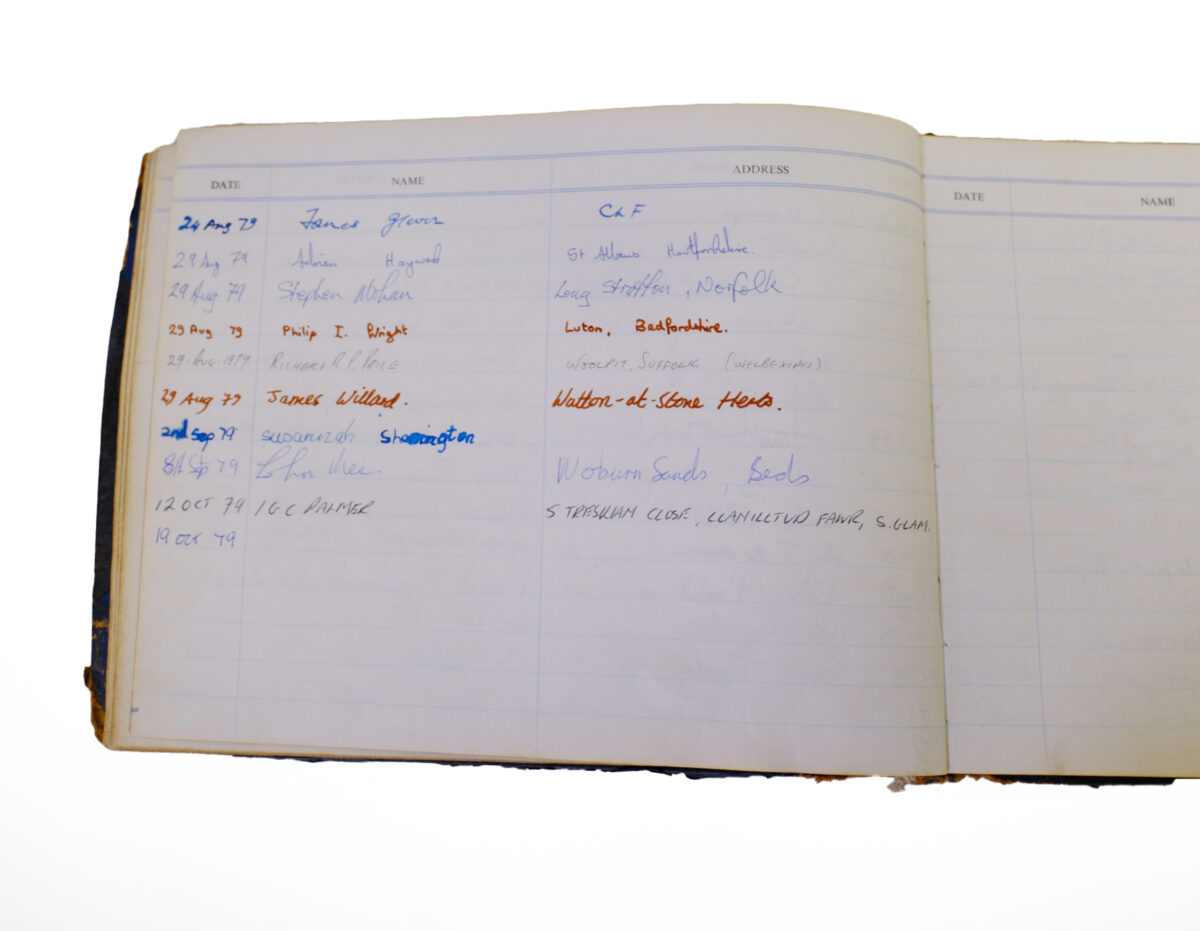 DATE NAME ADDRESS
24 Aug 79 James Glover C L F
29 Aug 79 Adrian Hayward St Albans. Hertfordshire.
29 Aug 79 Stephen Mohan Long Stratton, Norfolk
29 Aug 79 Philip I. Wright Luton, Bedfordshire.
29. Aug. 1979 RICHARD R.P. PRICE WOOLPIT, SUFFOLK (WELBEXIAN).
29 Aug 79 James Willard. Watton-at-Stone Herts.
2nd Sep 79 Susannah
8th Sep 79 John Mee. Woburn Sands, Beds
12 OCT 79 I G C PALMER 5 CLOSE, LLANILLTUD FAWR, S. GLAM.
19 OCT 79
DATE NAME